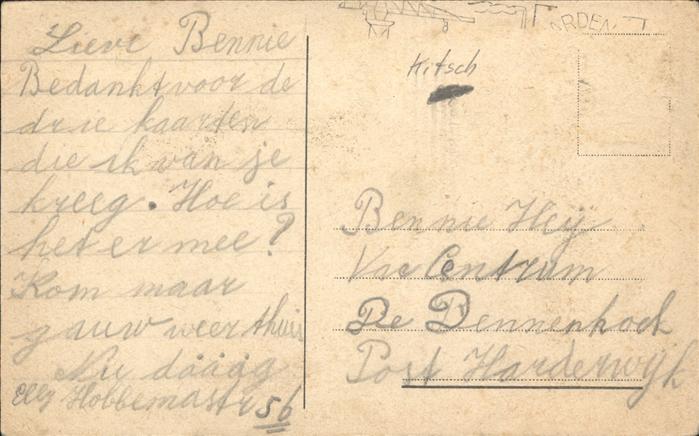 Lieve Bennie
Bedankt voor de
drie kaarten
die ik van je
kreeg. Hoe is
het er mee?
Kom maar
gauw weer thuis
Nu dááág
Elly Hobbemastr 56
RDEN
Kitsch
Bennie Heÿ
Centrum
De Dennenhoek
Post Harderwyk